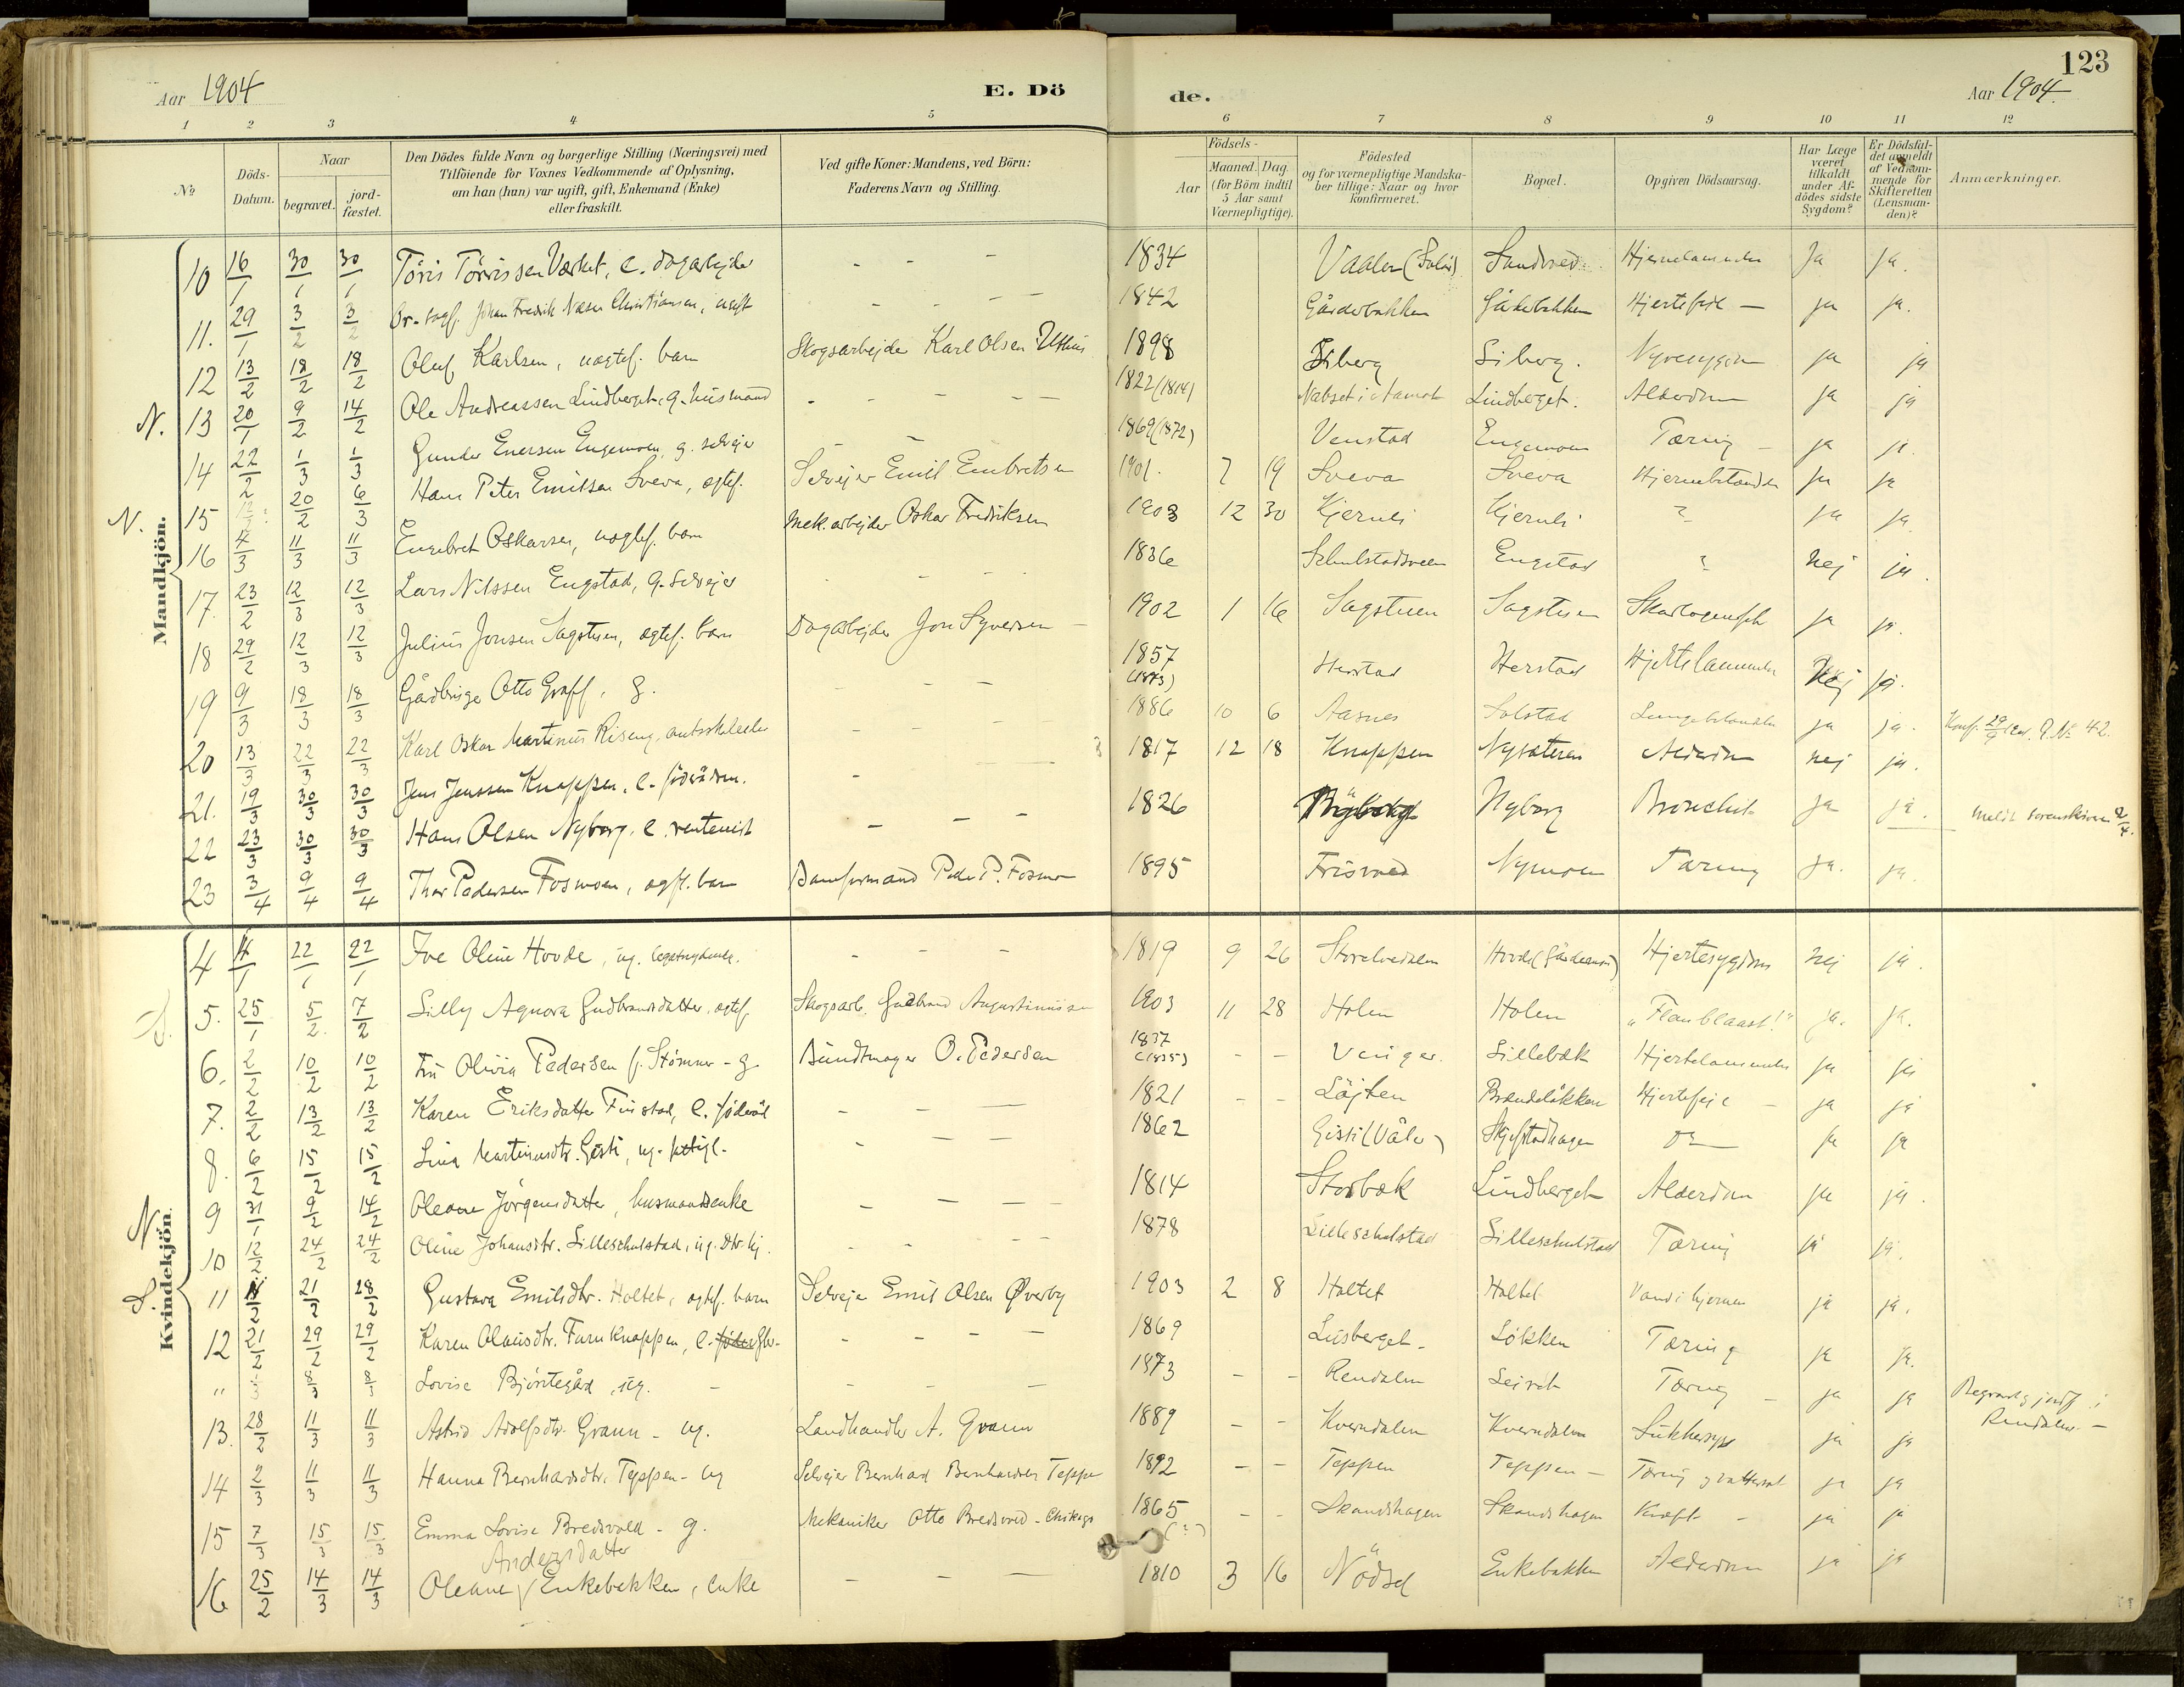 123
Aar 1904 E. Dö de. Aar 1904.
1 2 3 4 5 6 7 8 9 10 11 12
№ Döds-Datum. Naar begravet. jord-fæstet. Den Dödes fulde Navn og borgerlige Stilling (Næringsvei) med Tilföiende for Voxnes Vedkommende af Oplysning, om han (hun) var ugift, gift, Enkemand (Enke) eller fraskilt. Ved gifte Koner: Mandens, ved Börn: Faderens Navn og Stilling. Aar Födsels- Maaned. Dag. (for Börn indtil 5 Aar samt Værnepligtige). Födested og for værnepligtige Mandskaber tillige: Naar og hvor konfirmeret. Bopæl. Opgiven Dödsaarsag. Har Læge været tilkaldt under Afdödes sidste Sygdom? Er Dödsfaldet anmeldt af Vedkommende for Skifteretten (Lensmanden)? Anmærkninger.
Mandkjön.
10 16/1 30/1 30/1 Töris Törrissen Værket, e. dagarbejder - - - 1834 Vaaler (Solör) Sundved Ja ja.
11. 29/1 3/2 3/2 Johan Fredrik Christiansen, ugift - - - - 1842 Gårderbakken Gårderbakken Hjertefejl — ja ja.
12 13/2 18/2 18/2 Oluf Karlsen, uægtef. barn Skogsarbejder Karl Olsen 1898 Siberg Siberg. Nyresygdom ja ja
N. 13 20/1 9/2 14/2 Ole Andreassen Lindberget, g. husmand - - - - - 1822 (1814) Lindberget. Alderdom ja ja
14 22/2 1/3 1/3 Gunder Enersen Engemoen, g. selvejer - - 1869 (1872) Venstad Engemoen Tæring - ja ja.
N. 15 20/2 6/3 Hans Peter Emilsen Sveva, ægtef. Selvejer Emil Embretsen 1901. 7 19 Sveva Sveva ja ja
16 4/3 11/3 11/3 Engebret Oskarsen, uægtef. barn Mek. arbejder Oskar Fredriksen 1903 12 30 Kjernli Kjernli ? ja ja.
17. 23/2 12/3 12/3 Lars Nilssen Engstad, g. Selvejer - - - 1836 Engstad ? nej ja.
18 29/2 12/3 12/3 Julius Jonsen Sagstuen, ægtef. barn Dagarbejder Jon Syversen - 1902 1 16 Sagstuen Sagstuen ja ja.
19 9/3 18/3 18/3 Gårdbruger Otto Graff, g. - - - 1857 (1873) Herstad Herstad Hjertelammelse Nej ja.
20 13/3 22/3 22/3 Karl Oskar Martinus Riseng, - - - 1886 10 6 Aasnes Solstad ja ja. Konf. 29/9 1901. P. № 42.
21. 19/3 30/3 30/3 Jens Jenssen Knappen, e. föderådsm. - 1817 12 18 Knappen Nysæteren Alderdom nej ja.
22 23/3 30/3 30/3 Hans Olsen Nyborg, e. rentenist - - - 1826 Nyborg Bronchit ja ja. Meldt Sorenskriveren 2/4.
23 3/4 9/4 9/4 Thor Pedersen Fosmoen, ægtf. barn Damformand Peder P. Fosmo 1895 Frisvold Nymoen Tæring ja. ja.
Kvindekjön.
4 14/1 22/1 22/1 Ive Oline Hovde, ug. - - - 1819 9 26 Storelvedalen Hovde Hjertesygdom nej ja.
S. 5. 25/1 5/2 7/2 Silly Agnora Gudbrandsdatter, ægtef. Skogsarb. Gudbrand Augustinussen 1903 11 28 Holen Holen „Flenblaast!" ja. ja.
6. 2/2 10/2 10/2 Fru Olivia Pedersen f. Stömner - g. Bundtmager O. Pedersen 1837 (1835) - - Uenige Lillebæk Hjertelammelse ja ja
7. 2/2 13/2 13/2 Karen Eriksdatter Finstad, e. föderåd - - — 1821 - - Löjten Brændelökken Hjertefejl - ja ja
8. 6/2 15/2 15/2 Lina Martinusdtr. Gisti, ug. - — — 1862 Gisti (Våler) Skjefstadhagen do ja ja
N. 9 31/1 9/2 14/2 Oleane Jörgensdatter, husmandsenke - — — 1814 Storbæk Lindberget Alderdom ja ja.
10 12/2 24/2 24/2 Oline Johansdtr. Lilleschulstad, ug. - - - - 1878 Lilleschulstad Lilleschulstad Tæring ja ja.
S. 11 21/2 28/2 Gustava Emilsdtr. Holtet, ægtef. barn Selvejer Emil Olsen Øverby 1903 2 8 Holtet Holtet Vand i hjernen ja ja.
12 21/2 29/2 29/2 Karen Olausdtr. Furuknappen, e. - - - - 1869 Lusberget. Lökken Tæring ja ja.
" 8/3 8/3 Lovise Björtegård, ug. - - - - - 1873 - - Rendalen Leiret Tæring - ja ja Begravet og jordf. i Rendalen. -
13. 28/2 11/3 11/3 Astrid Adolfsdtr. Grann - ug. Landhandler A. Grann 1889 - - Kverndalen Kverndalen Sukkersyge ja ja
14 2/3 11/3 11/3 Hanna Bernhardsdtr. Teppen - ug Selvejer Bernhard Bernhardsen Teppen 1892 - - Teppen Teppen - Tæring og ja ja
15 7/3 15/3 15/3 Emma Lovise Bredsvold - g. Mekaniker Otto Bredsvold - Chikago 1865 (?) - - Skandshagen Skandshagen Kræft - ja ja
Andersdatter
16 25/2 14/3 14/3 Oleane Enkebakken, enke - - — 1810 3 16 Nödsel Enkebakken Alderdom ja ja